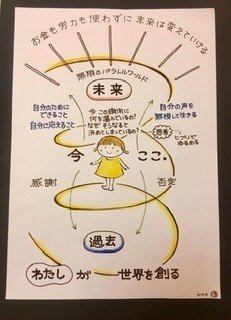 お金も労力も使わずに未来は変えていける
無限のパラレルワールドに
未来
自分のために
できること
自分に応えること
今この瞬間に
何を選んでいるの?
なぜそうなると
決めてしまっているの?
自分の声を
無視して生きる
思考
ヒプノで
ゆるめる
今
ここ.
感謝
否定
過去
わたしが 世界を創る